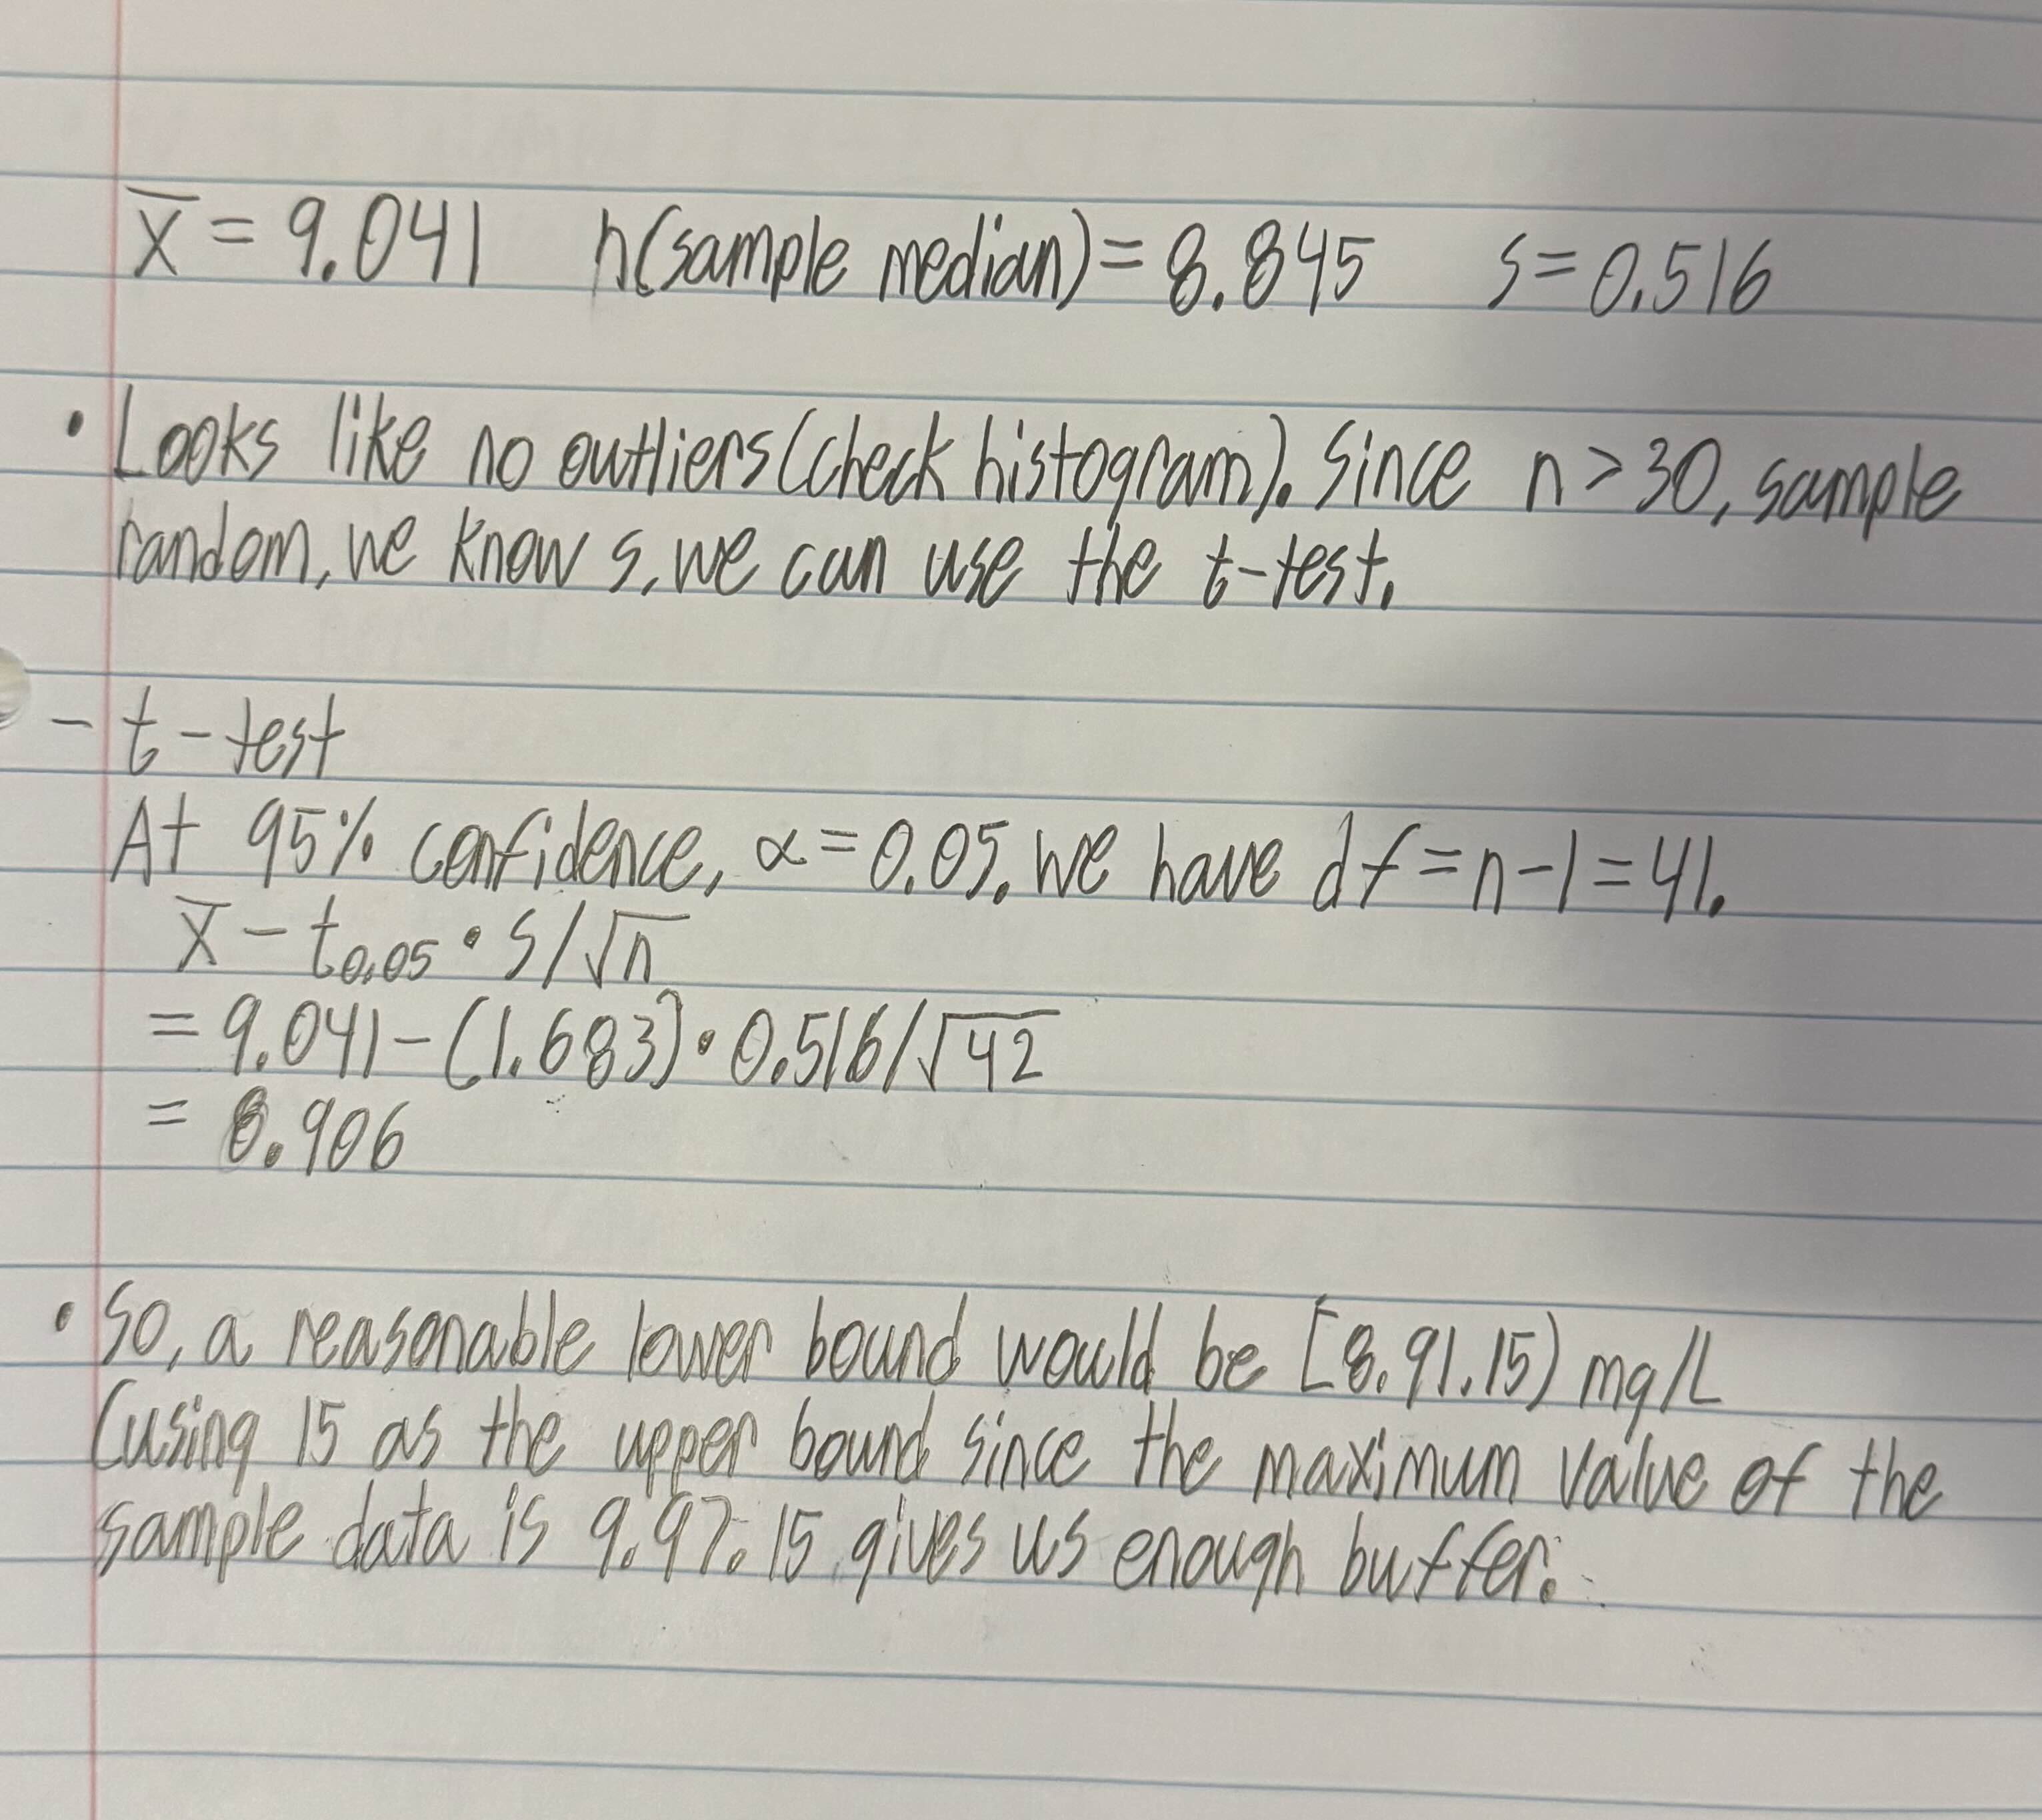 x̄ = 9.041 n(sample median) = 8.845 s = 0.516
• Looks like no outliers (check histogram). Since n > 30, sample
random, we know s, we can use the t-test.
- t-test
At 95% confidence, α = 0.05. we have df = n-1 = 41.
x̄ - t0.05 • s/√n
= 9.041 - (1.683) • 0.516/√42
= 8.906
• So, a reasonable lower bound would be [8.91.15) mg/L
(using 15 as the upper bound since the maximum value of the
sample data is 9.97. 15 gives us enough buffer.